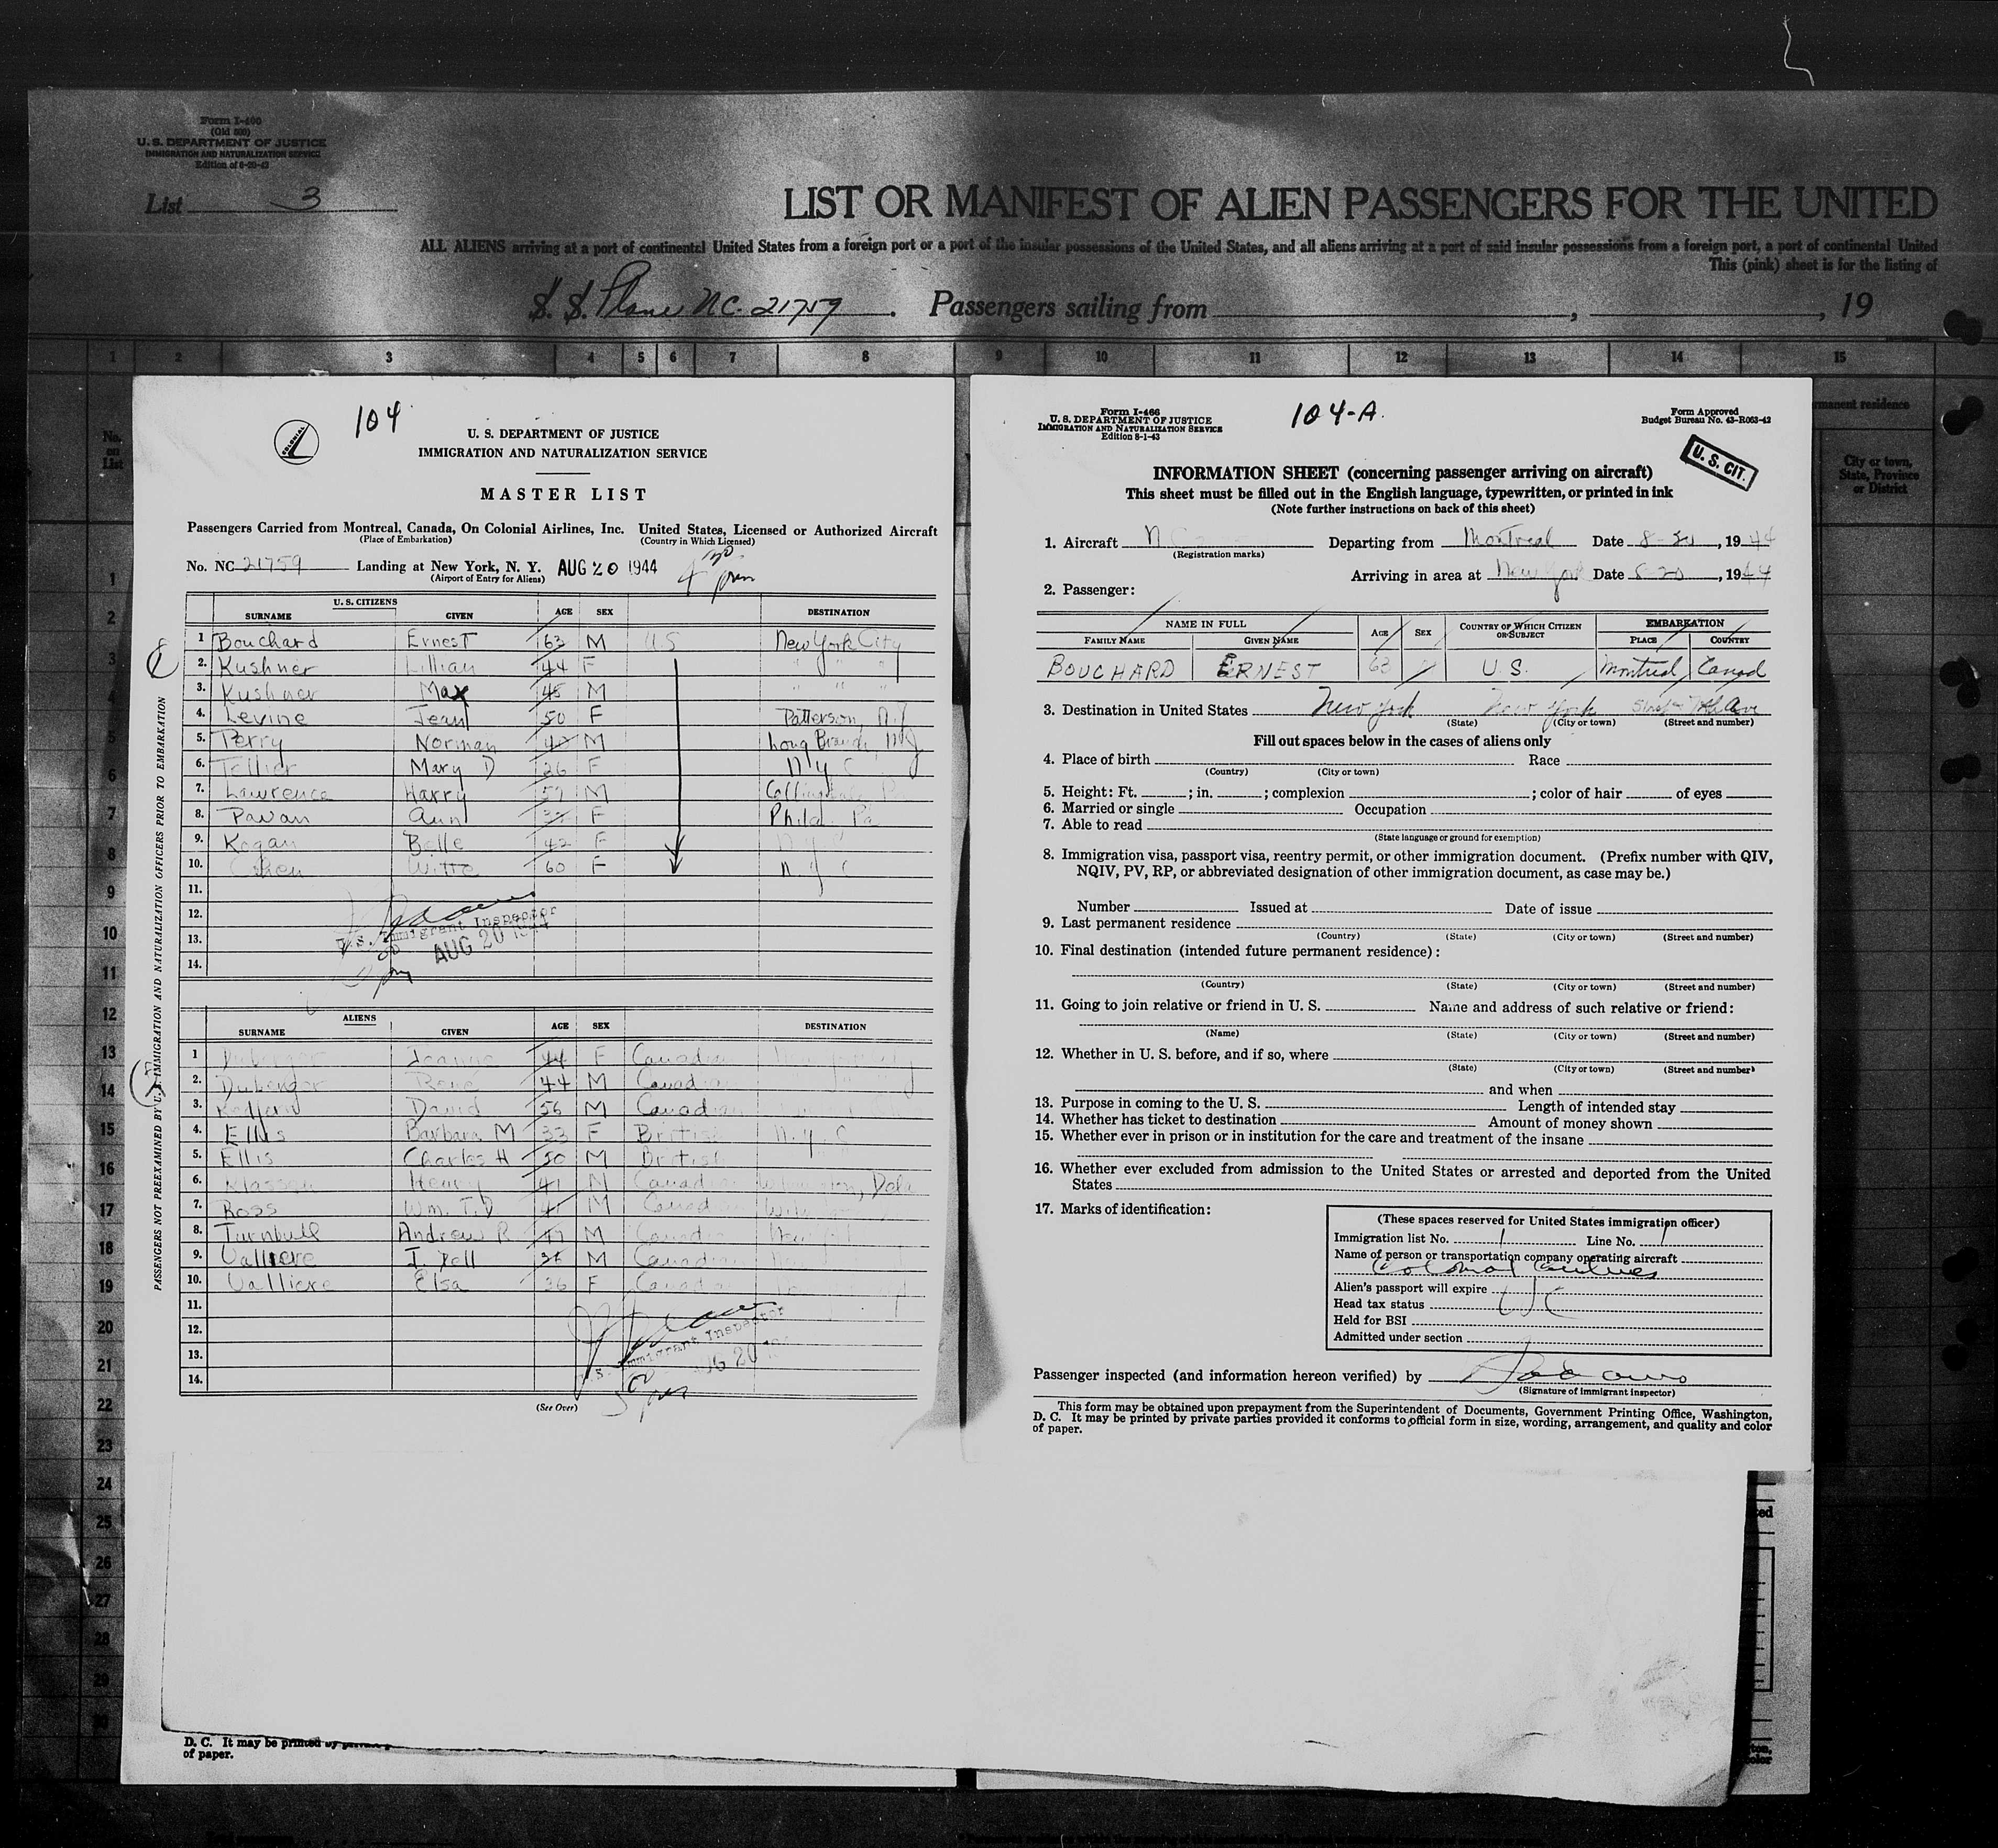 Form I-466
(Old 500)
U. S. DEPARTMENT OF JUSTICE
IMMIGRATION AND NATURALIZATION SERVICE
List 3
LIST OR MANIFEST OF ALIEN PASSENGERS FOR THE UNITED
ALL ALIENS arriving at a port of continental United States from a foreign port or a port of the insular possessions of the United States, and all aliens arriving at a port of said insular possessions from a foreign port, a port of continental United
This (pink) sheet is for the listing of
S. S. Plane NC. 21759. Passengers sailing from , , 19
1 2 3 4 5 6 7 8 9 10 11 12 13 14 15
No. on List
rmanent residence
City or town, State, Province or District
1
2
3
4
5
6
7
8
9
10
11
12
13
14
15
16
17
18
19
20
21
22
23
24
25
26
27
28
29
PASSENGERS NOT PREEXAMINED BY U.S. IMMIGRATION AND NATURALIZATION OFFICERS PRIOR TO EMBARKATION
COLONIAL
104
U. S. DEPARTMENT OF JUSTICE
IMMIGRATION AND NATURALIZATION SERVICE
MASTER LIST
Passengers Carried from Montreal, Canada, On Colonial Airlines, Inc. United States, Licensed or Authorized Aircraft
(Place of Embarkation) (Country in Which Licensed)
No. NC 21759 Landing at New York, N. Y. AUG 20 1944
(Airport of Entry for Aliens)
U. S. CITIZENS
SURNAME GIVEN AGE SEX DESTINATION
1 Bouchard Ernest 63 M U.S New York City
2. Kushner Lillian 44 F " " "
3. Kushner Max 45 M " " "
4. Levine Jean 50 F Patterson, N.J
5. Perry Norman 40 M Long Branch, N.J
6. Tellier Mary D 26 F N Y C
7. Lawrence Harry 57 M
8. Pavan Ann F Phila. Pa
9. Kogan Belle 42 F N Y C
10. Witte 60 F N Y C
11.
12.
13.
14.
U.S. Immigrant Inspector
AUG 20 1944
ALIENS
SURNAME GIVEN AGE SEX DESTINATION
1 44 F Canadian
2. Rene 44 M Canad
3. David 56 M Canadian
4. Ellis Barbara M 33 F British N.Y.C
5. Ellis Charles H 50 M British
6. Henry 41 M Canad , Dela
7. Ross Wm. T. D M Canad
8. Turnbull Andrew R M Canad
9. Valliere M Canad
10. Valliere Elsa 36 F Canad
11.
12.
13.
14.
U.S. Immigrant Inspector
AUG 20
(See Over)
D. C. It may be printed by
of paper.
Form I-466
U. S. DEPARTMENT OF JUSTICE
IMMIGRATION AND NATURALIZATION SERVICE
Edition 8-1-43
104-A.
Form Approved
Budget Bureau No. 43-R063-42
U. S. CIT.
INFORMATION SHEET (concerning passenger arriving on aircraft)
This sheet must be filled out in the English language, typewritten, or printed in ink
(Note further instructions on back of this sheet)
1. Aircraft N C Departing from Montreal Date 8-20, 1944
(Registration marks)
Arriving in area at New York Date 8-20, 1944
2. Passenger:
NAME IN FULL AGE SEX COUNTRY OF WHICH CITIZEN OR SUBJECT EMBARKATION
FAMILY NAME GIVEN NAME PLACE COUNTRY
BOUCHARD ERNEST 63 U.S. Montreal Canad
3. Destination in United States New York New York 7th Ave
(State) (City or town) (Street and number)
Fill out spaces below in the cases of aliens only
4. Place of birth Race
(Country) (City or town)
5. Height: Ft. ; in. ; complexion ; color of hair of eyes
6. Married or single Occupation
7. Able to read
(State language or ground for exemption)
8. Immigration visa, passport visa, reentry permit, or other immigration document. (Prefix number with QIV,
NQIV, PV, RP, or abbreviated designation of other immigration document, as case may be.)
Number Issued at Date of issue
9. Last permanent residence
(Country) (State) (City or town) (Street and number)
10. Final destination (intended future permanent residence):
(Country) (State) (City or town) (Street and number)
11. Going to join relative or friend in U. S. Name and address of such relative or friend:
(Name) (State) (City or town) (Street and number)
12. Whether in U. S. before, and if so, where
(State) (City or town) (Street and number)
and when
13. Purpose in coming to the U. S. Length of intended stay
14. Whether has ticket to destination Amount of money shown
15. Whether ever in prison or in institution for the care and treatment of the insane
16. Whether ever excluded from admission to the United States or arrested and deported from the United
States
17. Marks of identification:
(These spaces reserved for United States immigration officer)
Immigration list No. 1 Line No. 1
Name of person or transportation company operating aircraft
Colonial Airlines
Alien's passport will expire
Head tax status
Held for BSI
Admitted under section
Passenger inspected (and information hereon verified) by
(Signature of immigrant inspector)
This form may be obtained upon prepayment from the Superintendent of Documents, Government Printing Office, Washington,
D. C. It may be printed by private parties provided it conforms to official form in size, wording, arrangement, and quality and color
of paper.